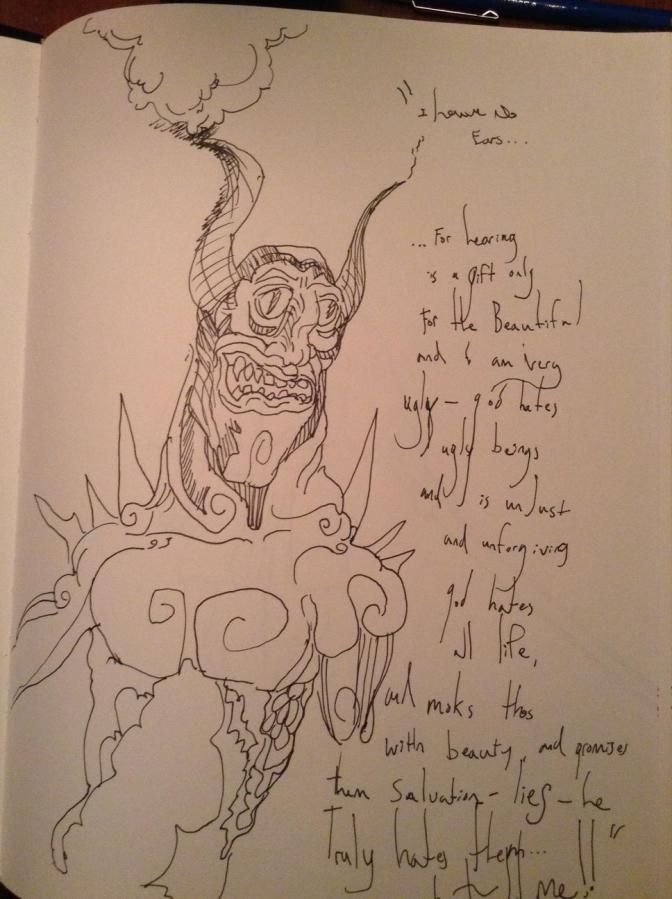 "I have no
Ears...
...For hearing
is a gift only
For the Beautiful
and I am very
ugly - god hates
ugly beings
and is unjust
and unforgiving
god hates
all life,
and maks thos
with beauty, and promises
them Salvation - lies - he
Truly hates them... !!"
me
93